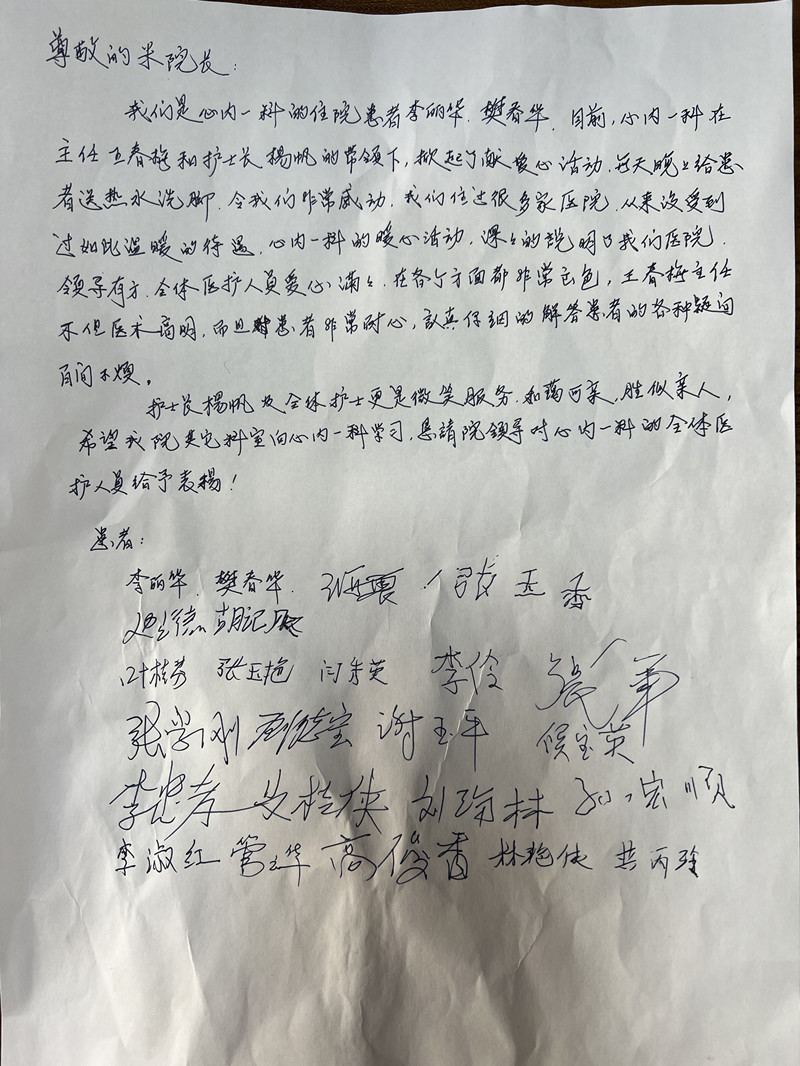 尊敬的米院长:
我们是心内一科的住院患者李丽华.樊春华.目前,心内一科在
主任王春梅和护士长楊帆的带领下,掀起了献爱心活动.每天晚上给患
者送热水洗脚.令我们非常感动.我们住过很多家医院.从来没受到
过如此温暖的待遇.心内一科的暖心活动,深々的説明了我们医院.
领导有方.全体医护人员爱心满々.在各个方面都非常出色,王春梅主任
不但医术高明,而且对患者非常耐心,認真仔细的解答患者的各种疑问
百问不烦。
护士长楊帆及全体护士更是微笑服务.和蔼可亲,胜似亲人,
希望我院其它科室向心内一科学习,恳請院领导对心内一科的全体医
护人员给予表楊!
患者:
李丽华.樊春华. 张玉香
叶桂芬 张玉艳 闫秀英 李伶 张军
张学刚 刘德宝 谢玉平 候宝英
李忠孝 桂侠 刘瑜林 孙宏顺
李淑红 管玉华 高俊香 林艳侠